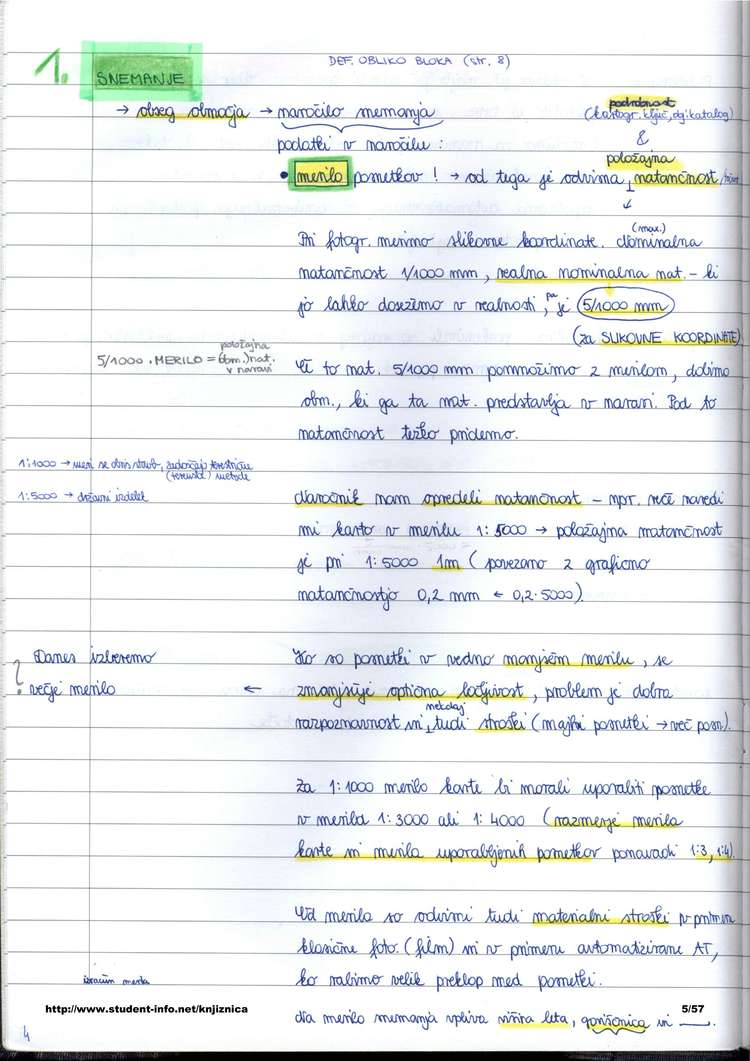 1. SNEMANJE
DEF. OBLIKO BLOKA (str. 8)
→ obseg območja → naročilo snemanja
podrobnost
(kartogr. ključ, obj. katalog)
&
podatki v naročilu :
položajna
• merilo posnetkov ! → od tega je odvisna natančnost
Pri fotogr. merimo slikovne koordinate. Nominalna
(max.)
natančnost 1/1000 mm, realna nominalna nat. – ki
jo lahko dosežemo v realnosti, pa je 5/1000 mm
(za SLIKOVNE KOORDINATE)
5/1000 . MERILO = (obm.) nat.
položajna
v naravi
Če to nat. 5/1000 mm pomnožimo z merilom, dobimo
obm., ki ga ta nat. predstavlja v naravi. Pod to
natančnost težko pridemo.
1:1000 → meri se obris stavb, zadoščajo terestrične
(terenske) metode
1:5000 → državni izdelek
Naročnik nam opredeli natančnost – npr. reče naredi
mi karto v merilu 1:5000 → položajna natančnost
je pri 1:5000 1m (povezano z grafično
natančnostjo 0,2 mm ← 0,2·5000).
Danes izberemo
? večje merilo ←
Ko so posnetki v vedno manjšem merilu, se
zmanjšuje optična ločljivost, problem je dobra
nekdaj
razpoznavnost in tudi stroški (majhni posnetki → več posn).
Za 1:1000 merilo karte bi morali uporabiti posnetke
v merilu 1:3000 ali 1:4000 (razmerje merila
karte in merila uporabljenih posnetkov ponavadi 1:3, 1:4).
Od merila so odvisni tudi materialni stroški v primeru
klasične foto. (film) in v primeru avtomatizirane AT,
ko rabimo velik preklop med posnetki.
izračun merila
http://www.student-info.net/knjiznica
5/57
Na merilo snemanja vpliva višina leta, goriščnica in ——.
4